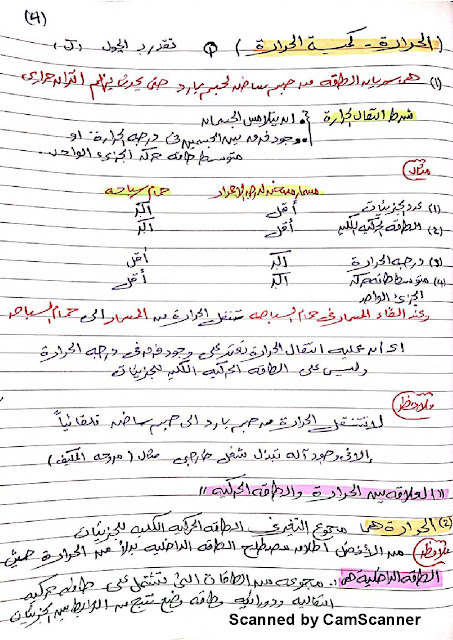 (4)
(الحرارة - كمية الحرارة) Q تقدر بـ الجول (J)
(1) هى سريان الطاقه من جسم ساخن لجسم بارد حتى يحدث بينهم اتزان حرارى
شرط انتقال الحرارة
ان يتلامس الجسمان
وجود فرق بين الجسمين فى درجه الحرارة او
متوسط طاقه حركه الجزىء الواحد
مثال
مسمار مسخن لدرجه الاحمرار حمام سباحه
(1) عدد الجزيئات أقل اكبر
(2) الطاقه الحركيه الكليه أقل اكبر
(3) درجه الحرارة اكبر أقل
(4) متوسط طاقه حركه اكبر أقل
الجزىء الواحد
وعند القاء المسمار فى حمام السباحه تنتقل الحرارة من المسمار الى حمام السباحه
اى ان عمليه انتقال الحرارة تعتمد على وجود فرق فى درجه الحرارة
وليس على الطاقه الحركيه الكليه للجزيئات
ملاحظه
لا تنتقل الحرارة من جسم بارد الى جسم ساخن تلقائياً
الا فى وجود آله تبذل شغل خارجى مثال (مروحه المكيف)
"العلاقه بين الحرارة والطاقه الحركيه"
(2) الحرارة هى مجموع التغير فى الطاقه الحركيه الكليه للجزيئات
ملاحظه من الأفضل اطلاق مصطلح الطاقه الداخليه بدلاً من الحرارة حيث
الطاقه الداخليه هى : مجموعه من الطاقات التى تشتمل على طاقه حركيه
انتقاليه ودورانيه وطاقه وضع تنتج من الترابط بين الجزيئات
Scanned by CamScanner